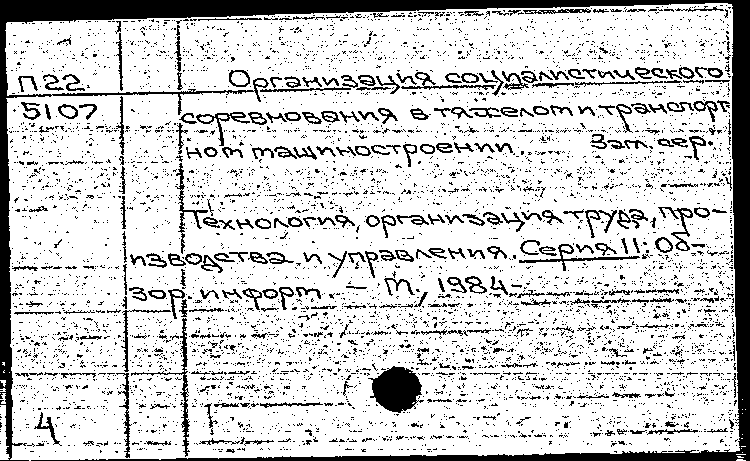 П22 Организация социалистического
5107 соревнования в тяжелом и транспорт
ном машиностроении. Заг. сер.
Технология, организация труда, про-
изводства и управления. Серия 11: Об-
зор. информ. – М., 1984-
4